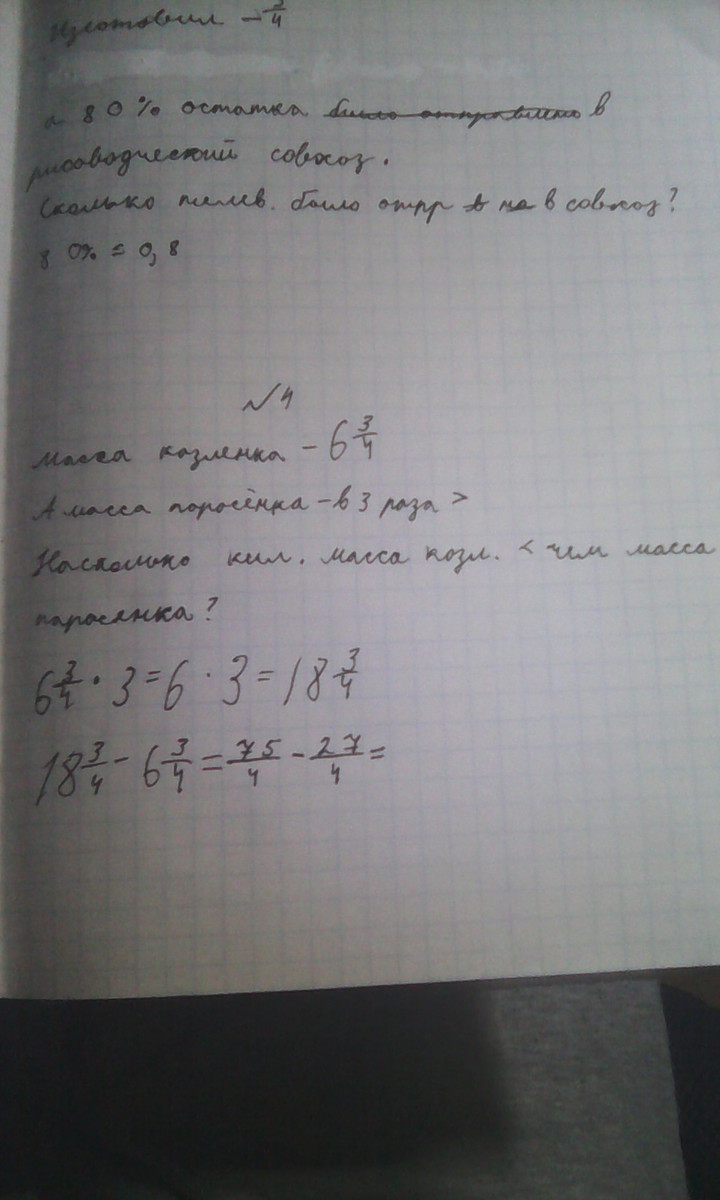 Изготовил - 3/4
а 80% остатка было отправлено в
рисоводческий совхоз.
Сколько телев. было отпр в не в совхоз?
80% = 0,8
№4
масса козленка - 6 3/4
А масса поросёнка - в 3 раза >
Насколько кил. масса козл. < чем масса
паросянка?
6 3/4 · 3 = 6 · 3 = 18 3/4
18 3/4 - 6 3/4 = 75/4 - 27/4 =